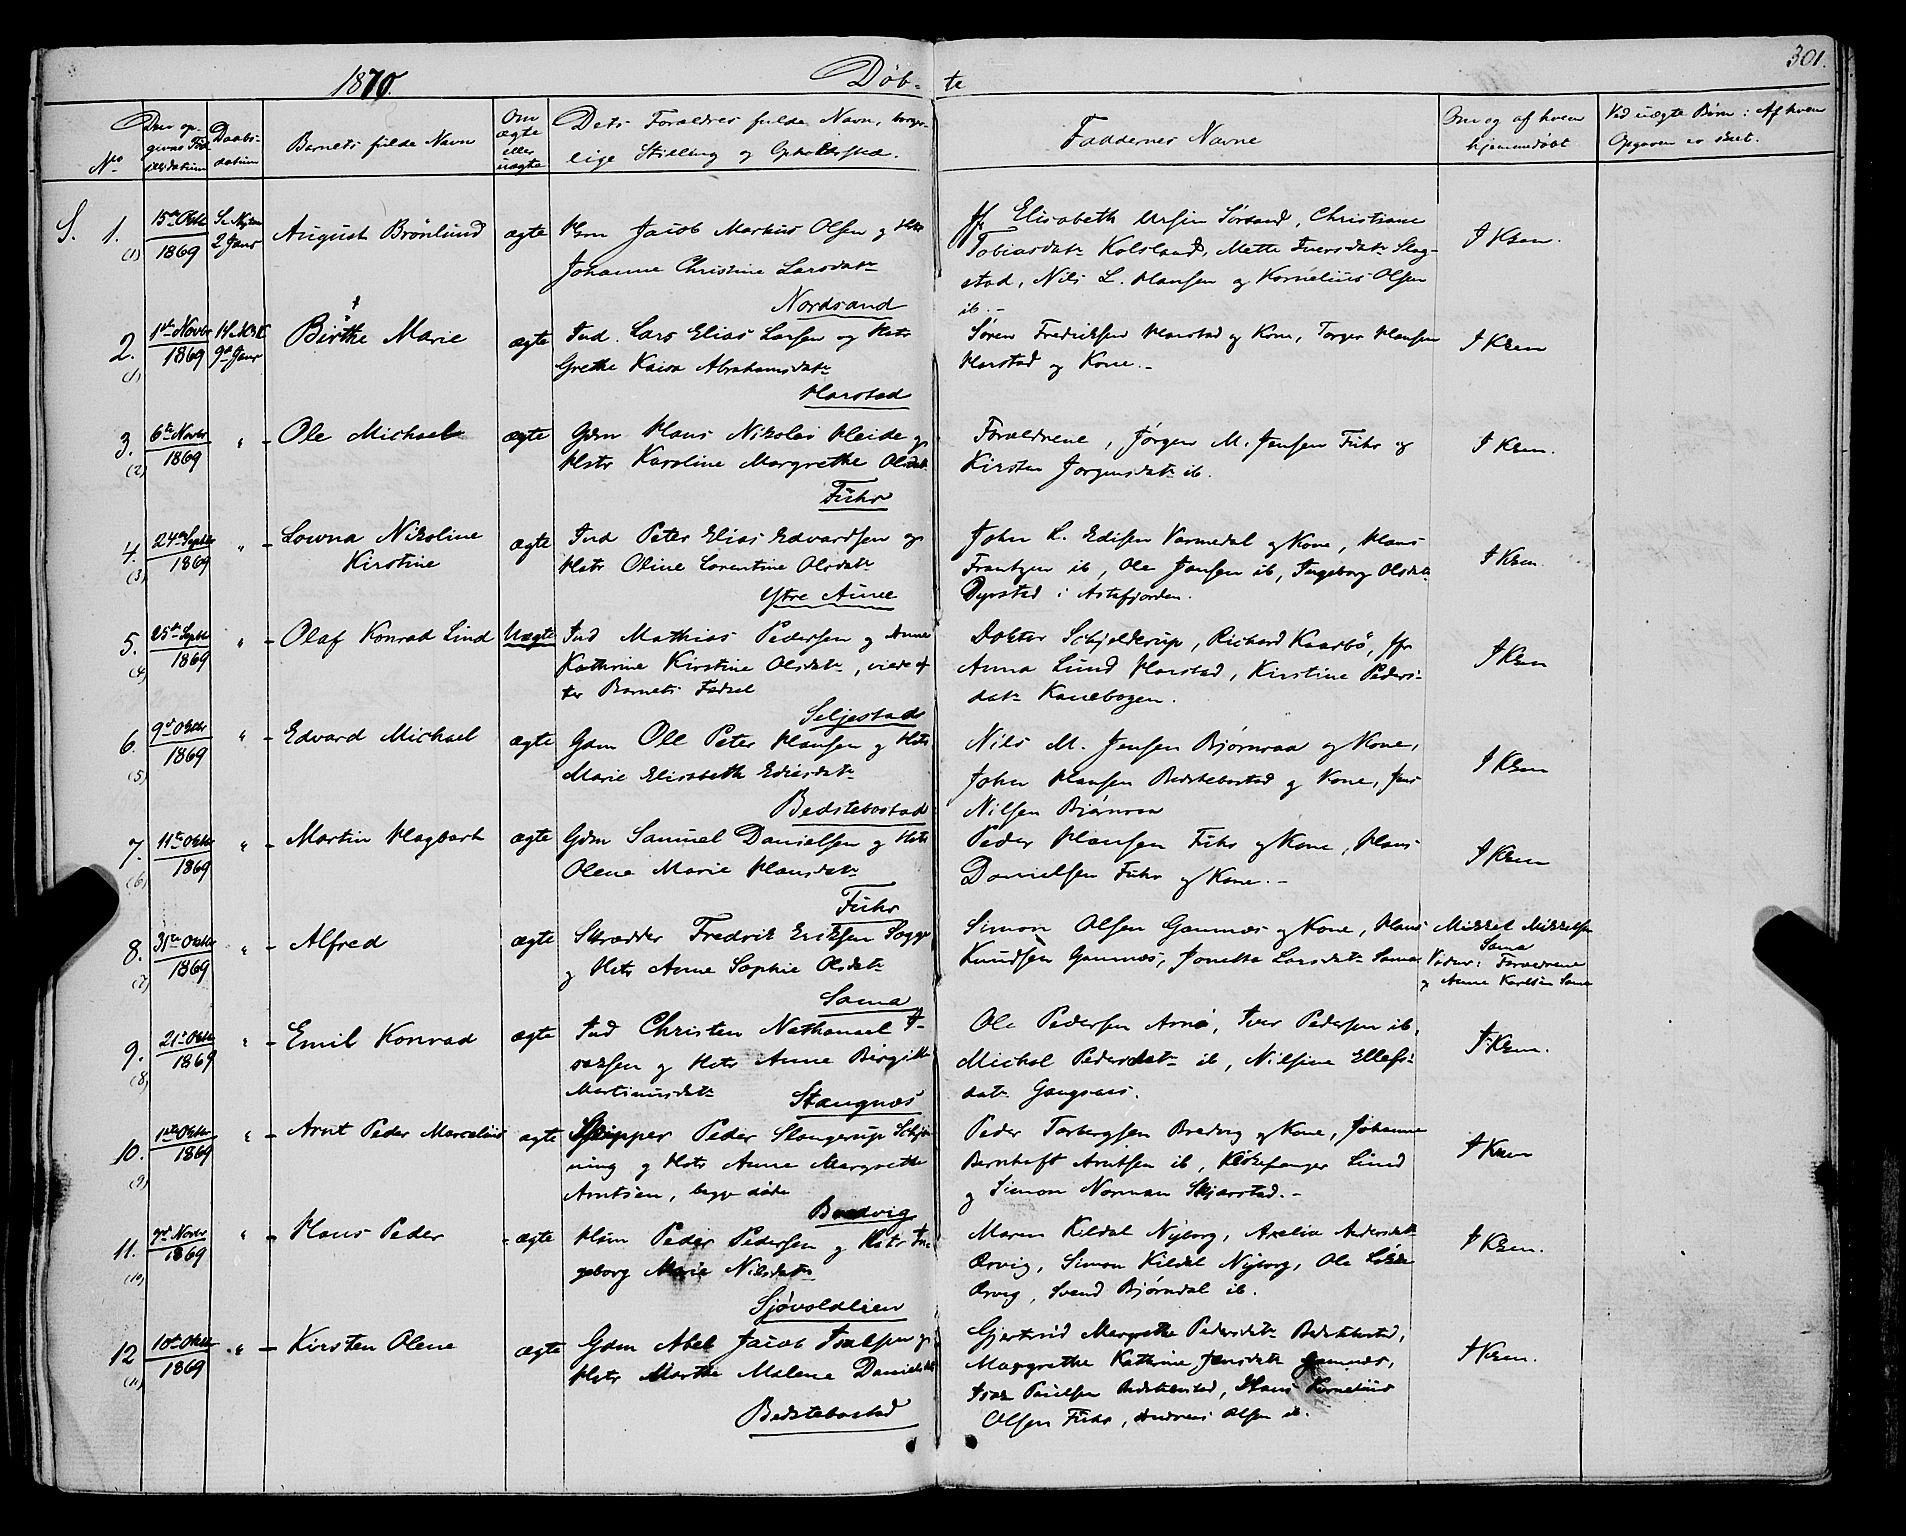 301.
1870. Døb- te
No
Den op-
givne Fød
selsdatum
Daabs-
datum
Barnets fulde Navn
Om
ægte
eller
uægte
Dets Forældres fulde Navn, borger-
lige Stilling og Opholdssted.
Faddernes Navne
Om og af hvem
hjemmedøbt
Ved uægte Børn: Af hvem
Opgaven er skeet.
S. 1. (1) 15de Oktbr 1869 2 Janr August Brönlund ægte Hsm Jacob Martius Olsen og Hstr
Johanne Christine Larsdatr
Nordsand
Jfr Elisabeth Ursin Sørsand, Christiane
Tobiasdatr Kolsland, Mette Iversdatr Slag-
stad, Nils L. Hansen og Kornelius Olsen
ib.-
I Krkn.
2. (1) 1ste Novbr 1869 9de Janr Birthe Marie ægte Ind. Lars Elias Larsen og Hstr
Grethe Kaisa Abrahamsdatr
Harstad
Søren Fredriksen Harstad og Kone, Torger Hansen
Harstad og Kone.-
I Krkn
3. (2) 6te Novbr 1869 " - Ole Michael ægte Gdm Hans Nikolai Heide og
Hstr Karoline Margrethe Olsdatr
Fuhr
Forældrene, Jørgen M. Jensen Fuhr og
Kirsten Jorgensdatr ib.
I Krkn.
4. (3) 24de Septbr 1869 " - Lovna Nikoline
Kirstine
ægte Ind Peter Elias Edvardsen og
Hstr Oline Lorentine Olsdatr
Ytre Aune
John L. Edisen Varmedal og Kone, Hans
Frantzen ib, Ole Jensen ib, Ingeborg Olsdatr
Dyrstad i Astafjorden.
I Krkn.
5. (4) 25de Septbr 1869 " - Olaf Konrad Lind Uægte Ind Mathias Pedersen og Anne
Kathrine Kirstine Olsdatr, viede ef
ter Barnets Fødsel
Seljestad
Doktor Schjelderup, Richard Kaarbö, Jfr
Anna Lund Harstad, Kirstine Peders-
datr Kanebogen.
I Krkn
6. (5) 9de Oktbr 1869 " - Edvard Michael ægte Gdm Ole Peter Hansen og Hstr
Marie Elisabeth Ediasdatr
Bedstebostad
Nils M. Jensen Bjørnraa og Kone,
John Hansen Bedstebostad og Kone, Jens
Nilsen Bjørnraa
I Krkn
7. (6) 11te Oktbr 1869 " - Martin Hagbart ægte Gdm Samuel Danielsen og Hstr
Olene Marie Hansdatr
Fuhr
Peder Hansen Fuhr og Kone, Hans
Danielsen Fuhr og Kone.-
I Krkn
8. (7) 31te Oktbr 1869 " - Alfred ægte Skrædder Fredrik Eriksen Sagge
og Hstr Anne Sophie Olsdatr
Sama
Simon Olsen Gannæs og Kone, Hans
Knudsen Gannæs, Jonetta Larsdatr Sama
Mikkel Mikkelsen
Sama
Vidner: Forældrene
og Anne Karlsen Sama
9. (8) 21de Oktbr 1869 " - Emil Konrad ægte Ind Christen Nathanael I-
saksen og Hstr Anne Birgitte
Martinusdatr
Stangnæs
Ole Pedersen Arnö, Iver Pedersen ib,
Michal Pedersdatr ib, Nilsine Ellefs-
datr Gangsaas.
I Krkn.
10. (9) 1ste Oktbr 1869 " - Arnt Peder Marcelius ægte Skipper Peder Slangerup Schjø-
ning og Hstr Anne Margrethe
Arntsen, begge døde
Bredvig
Peder Torbergsen Bredvig og Kone, Johanne
Bernhoft Arntsen ib, Kirkesanger Lund
og Simon Norman Skjærstad.-
I Krkn
11. (10) 7de Novbr 1869 " - Hans Peder ægte Hsm Peder Pedersen og Hstr In
geborg Marie Nilsdatr
Sjøvoldlien
Maren Kildal Nyborg, Axelia Andersdatr
Ørvig, Simon Kildal Nyborg, Ole
Ørvig, Svend Bjørndal ib.
I Krkn.
12 (11) 10de Oktbr 1869 " - Kirsten Olene ægte Gdm Abel Jacob Isaksen og
Hstr Marthe Malene Danielsdtr
Bedstebostad
Gjertrud Margrethe Pedersdatr Bedstebostad,
Margrethe Kathrine Jensdatr Gannæs,
Isak Paulsen Bedstebostad, Hans Kornelius
Olsen Fuhr, Andreas Olsen ib.
I Krkn.